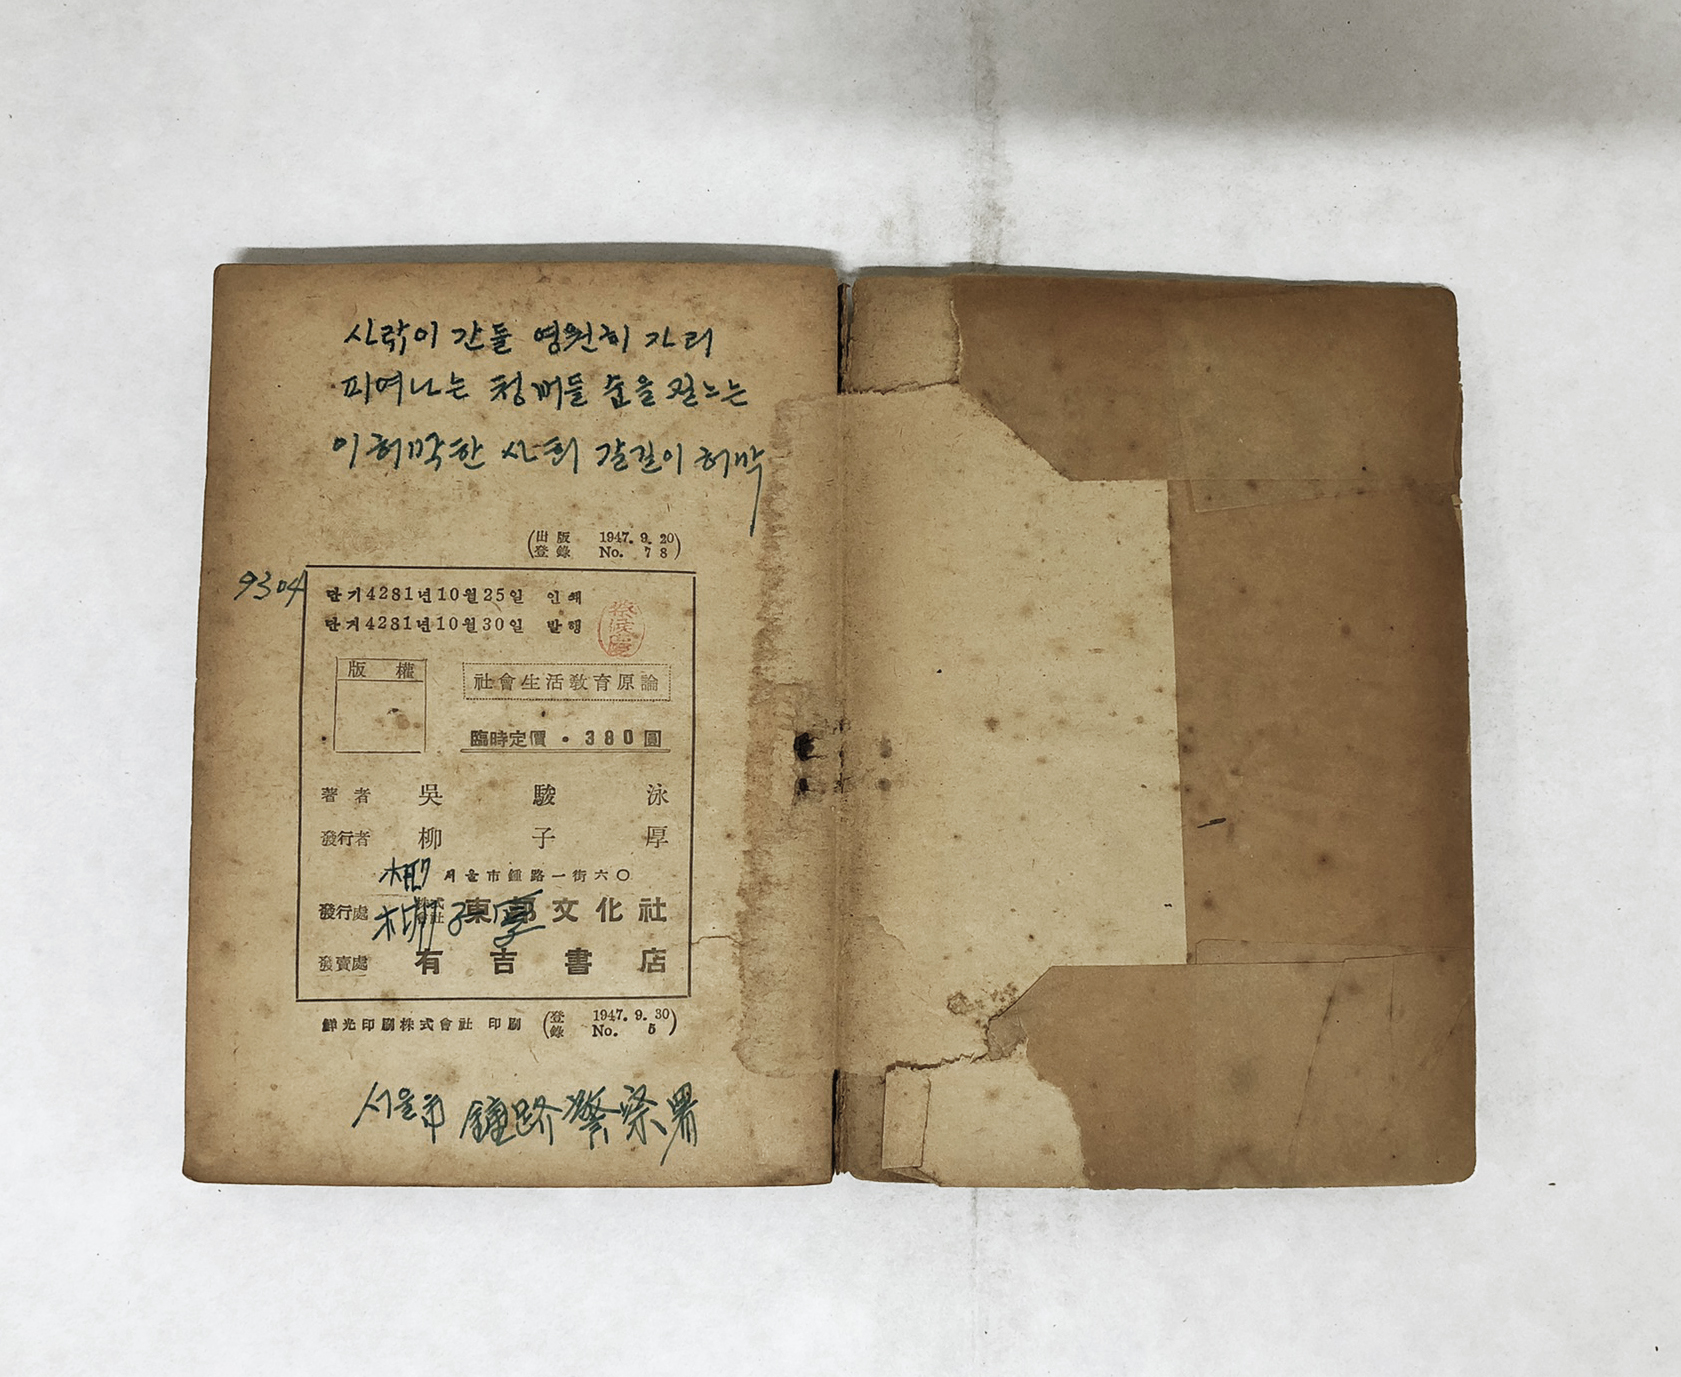 사랆이 간들 영원히 가리
피여나는 청버들 순을 짇느는
이 허막한 사회 갈길이 허막
出版 1947. 9. 20
登錄 No. 78
9304
단기4281년10월25일 인쇄
단기4281년10월30일 발행
版權
社會生活敎育原論
臨時定價・380圓
著者 吳駿泳
發行者 柳子厚
柳 서울市鍾路一街六〇
發行處 株式會社 東邦文化社
柳子厚
發賣處 有吉書店
鮮光印刷株式會社 印刷 (登錄 1947. 9. 30 No. 5)
서울市 鍾路警察署